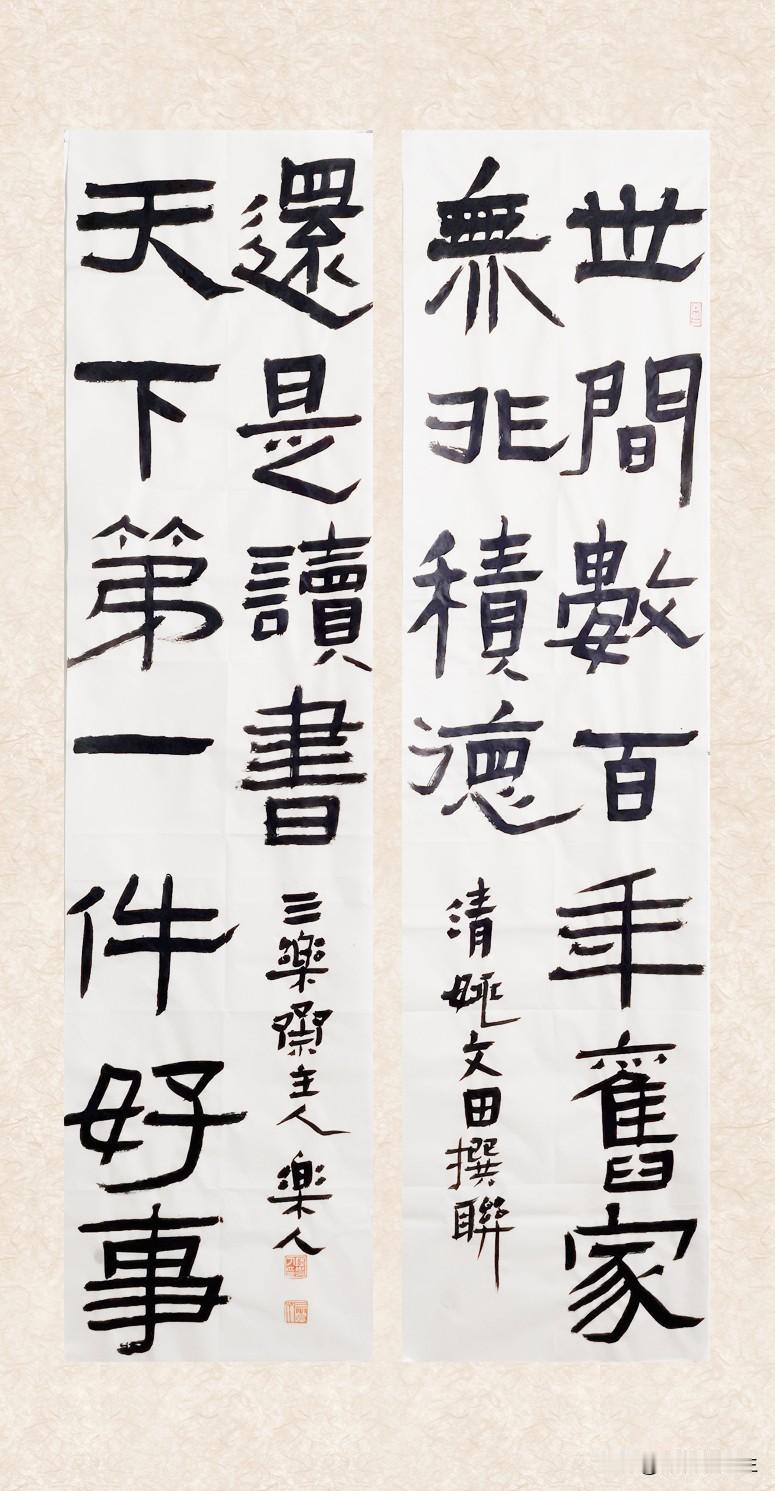 世間數百年舊家
無非積德
清姚文田撰聯
天下第一件好事
還是讀書
三樂齋主人 樂人